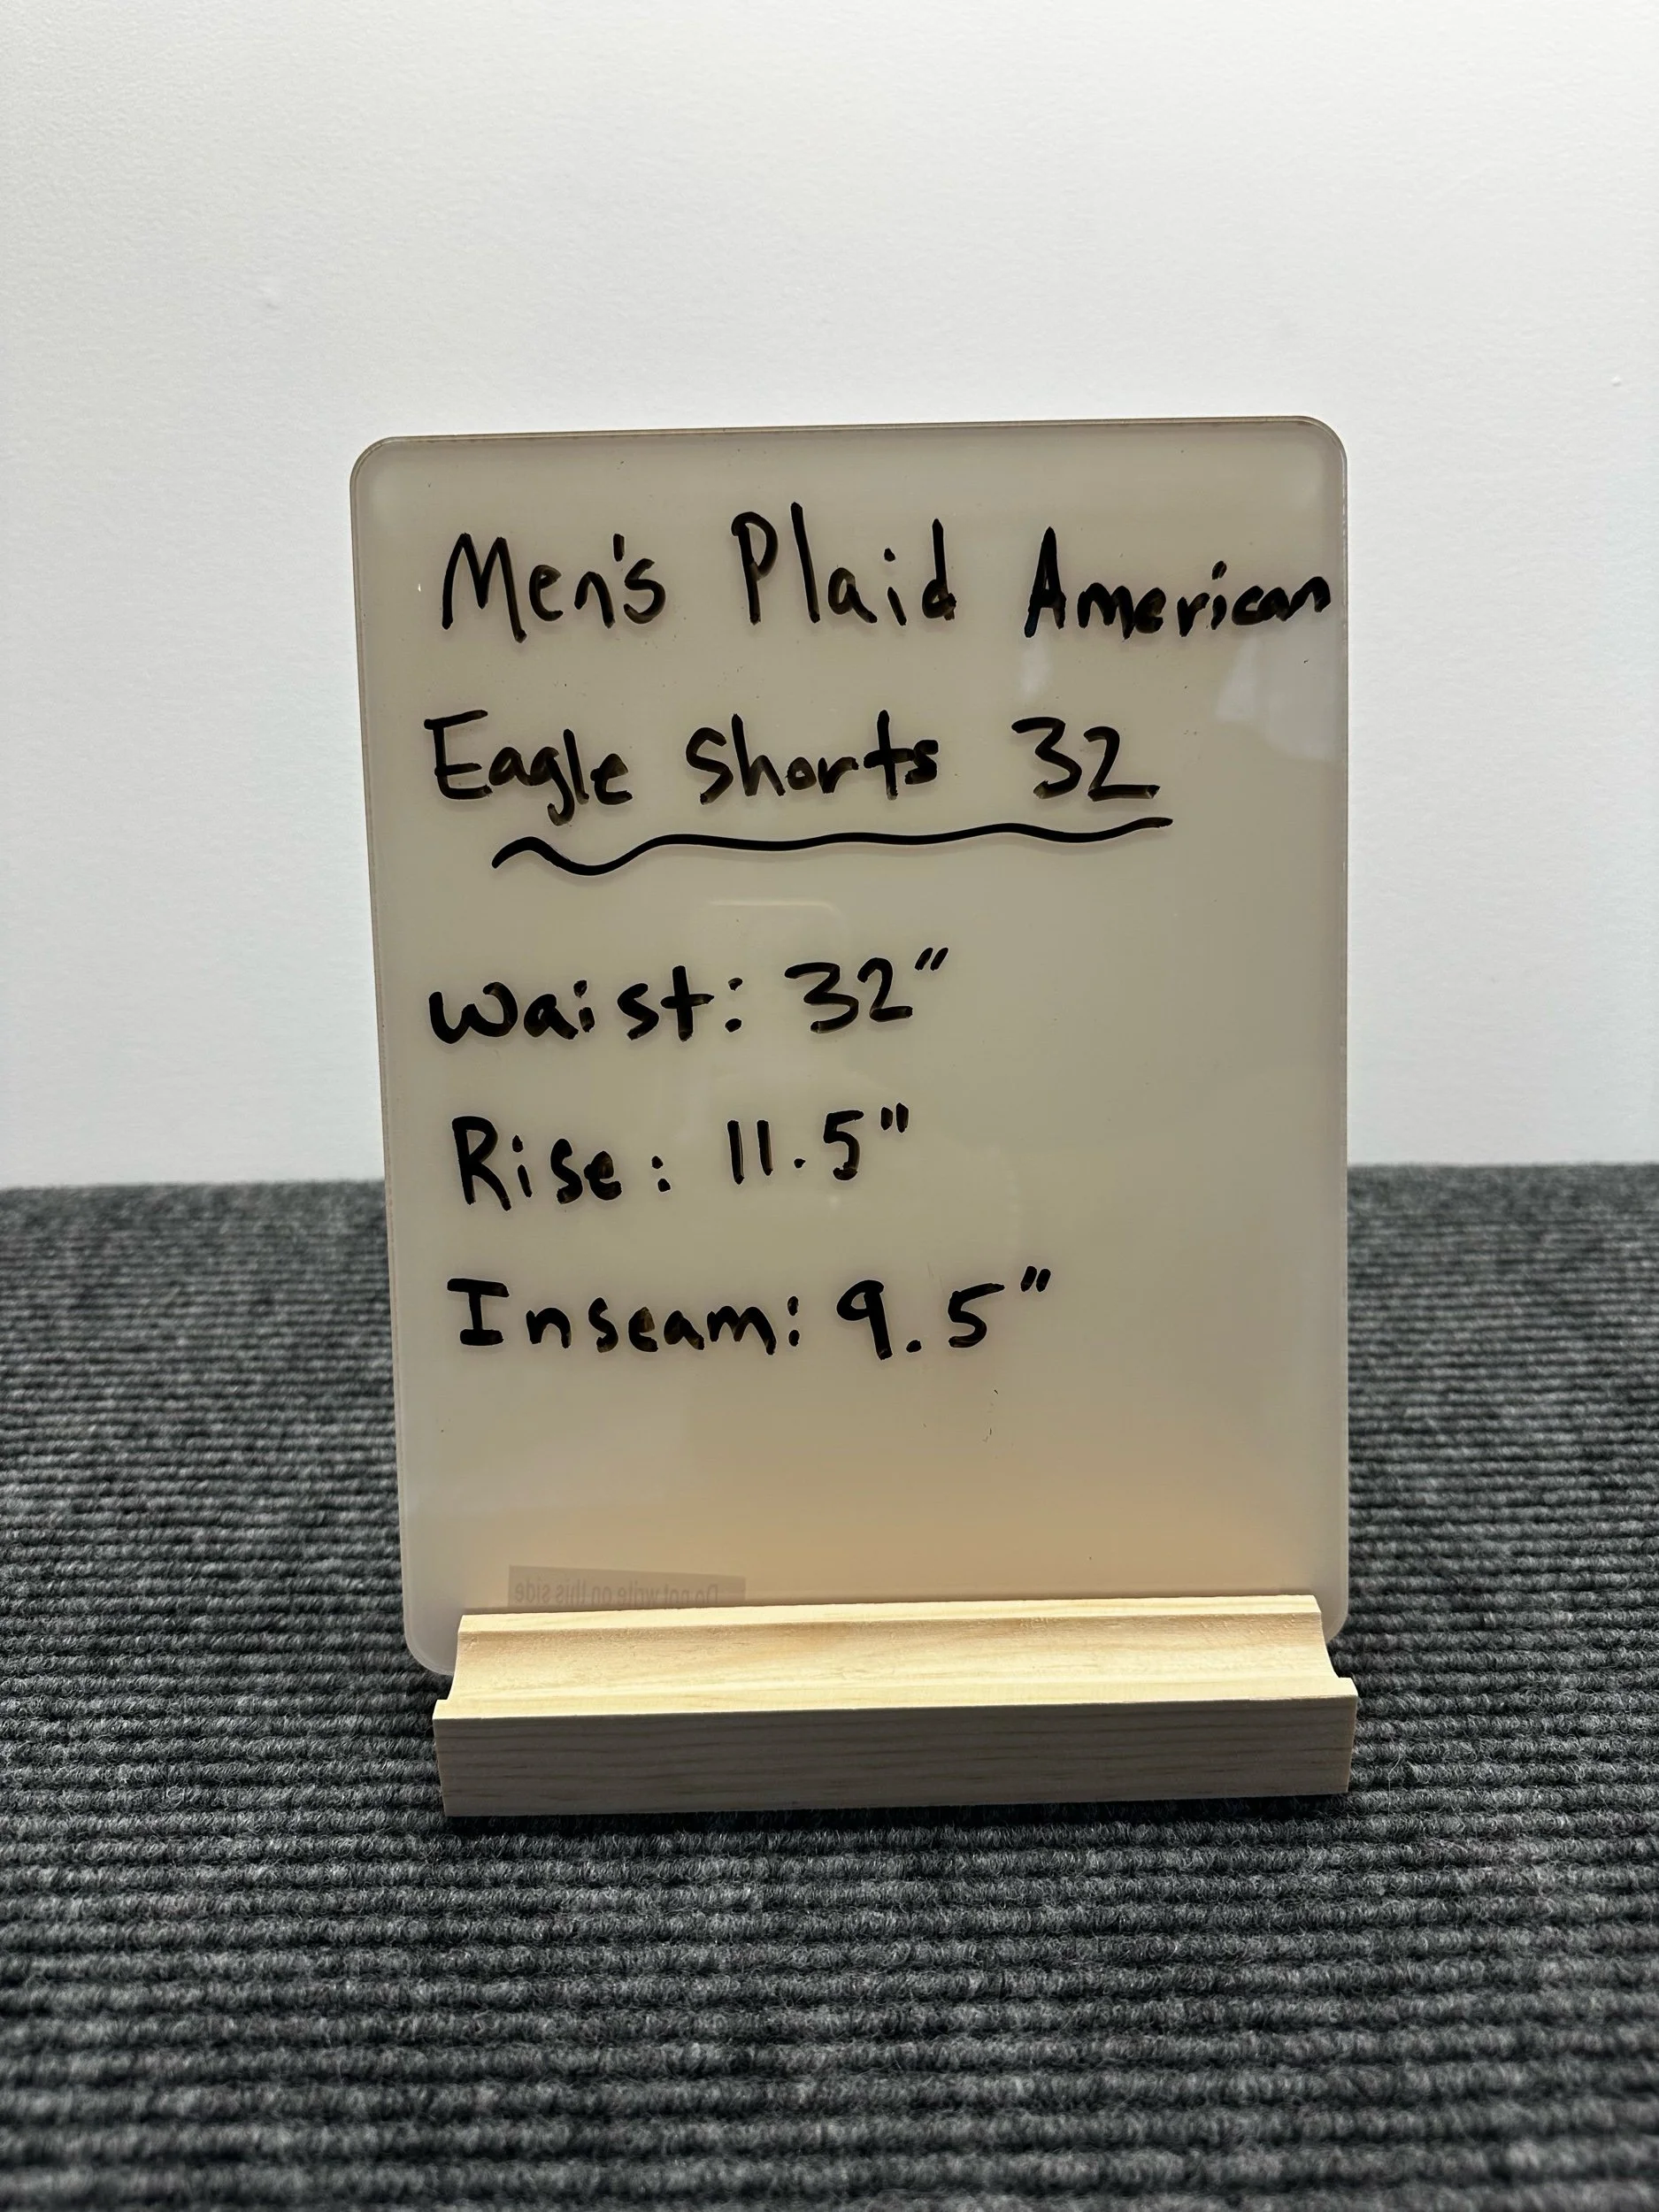 Men's Plaid American
Eagle Shorts 32
Waist: 32"
Rise: 11.5"
Inseam: 9.5"
Do not write on this side